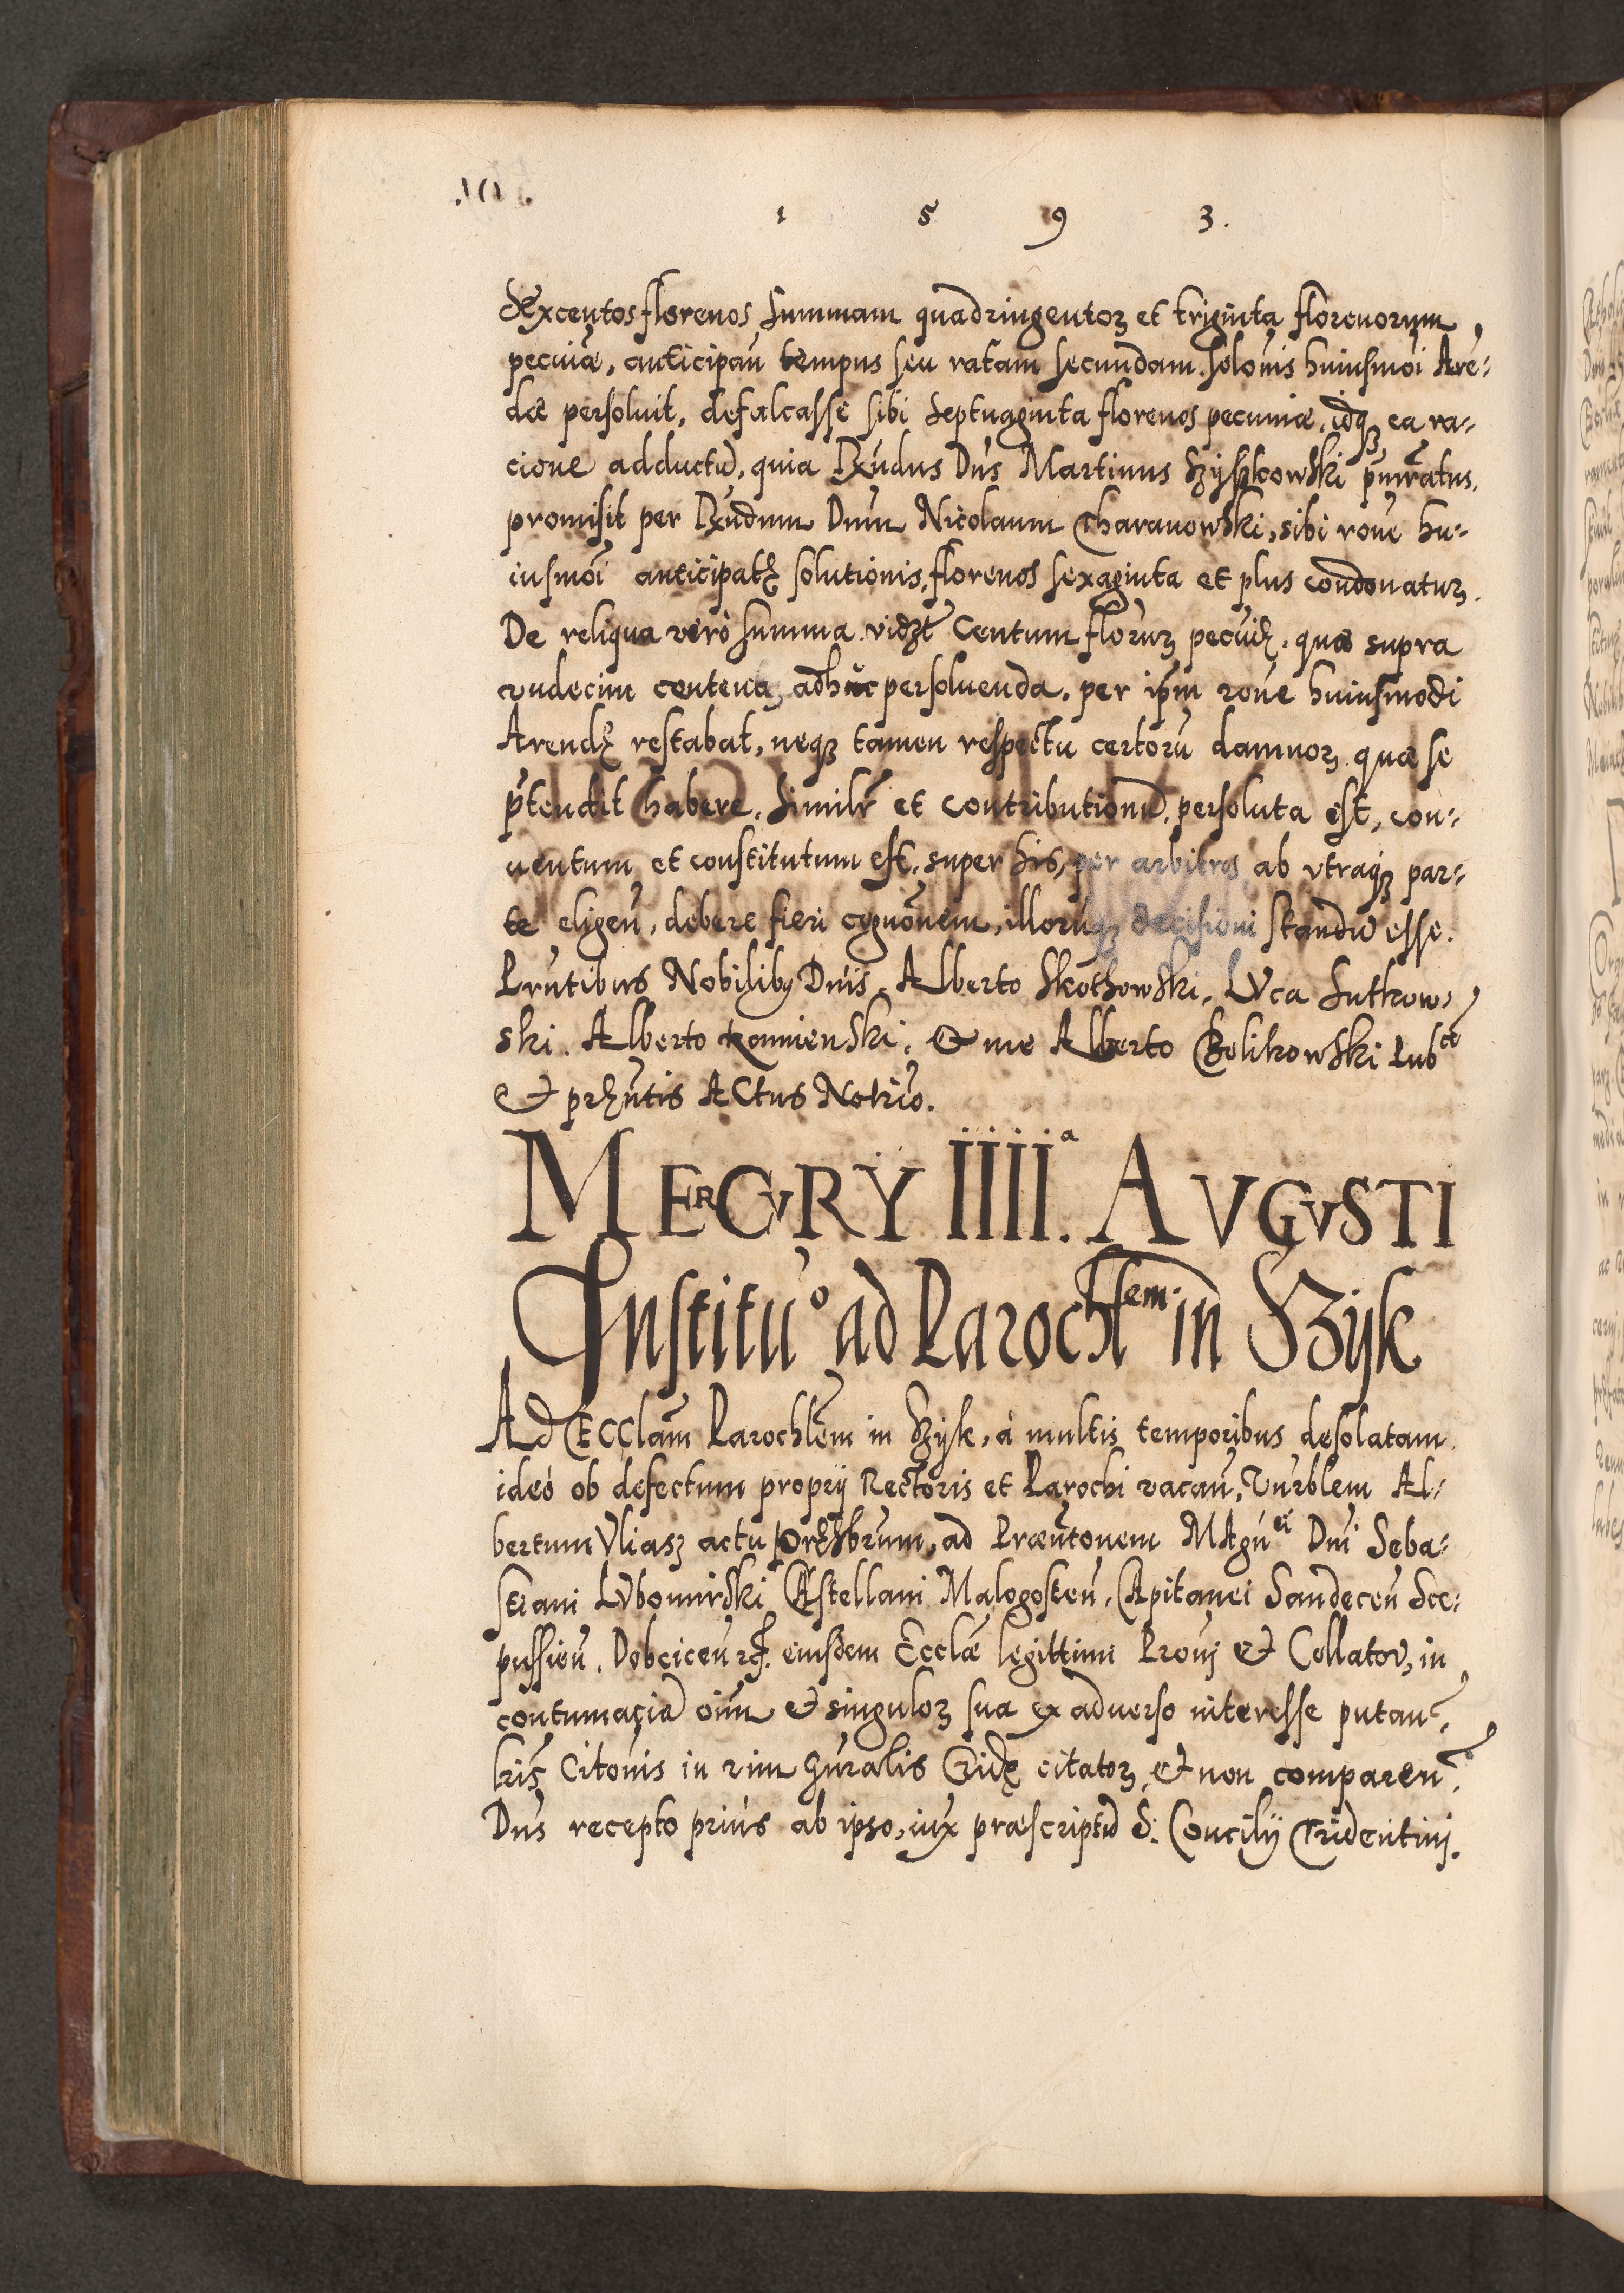 1 5 9 3.
Sexcentos florenos Summam quadringentoꝝ et triginta florenorum
pecuiæ, anticipań tempus seu ratam secundam solońis huiusmoi Are-
dæ persoluit, defalcasse sibi Septuaginta florenos pecuniæ, idqꝫ ea ra-
cione adductū, quia Rx̄ndus Dńs Martinus Szyszkowski pnirratus
promisit per Rx̄ndum Dnm̄ Nicolaum Tharanowski, sibi rońe hu-
iusmoi anticipatę solutionis, florenos sexaginta et plus condonatuꝝ.
De reliqua verò summa vidꝫt Centum floruꝝ pecuię, quæ supra
vndecim centena, adhuc persoluenda, per ipm̄ rońe huiusmodi
Arendę restabat, neqꝫ tamen respectu certorū damnoꝝ quæ se
p̄tendit habere, Similr̄ et contributionū, persoluta est, con-
uentum et constitutum est, super his, per arbitros ab vtraqꝫ par-
te eligeń, debere fieri cognōnem, illorūqꝫ decisioni standū esse.
Prn̄tibus Nobilibꝰ Dńis, Alberto Skothowski, Lvca Sutkow-
ski, Alberto Kamienski, & me Alberto Bolikowski Pubco
& prn̄tis ACtus Notrio.
MERCVRY IIIIa. AVGVSTI
Institúo ad Parochłem in SZyk
Ad ECClam̄ Parochłem in Szyk, à multis temporibus desolatam
ideò ob defectum proprij Rectoris et Parochi vacań, Vn̄rblem Al-
bertum Vliasz actu Prēsbrum, ad Præn̄tonem MAgnei Dni Seba-
stiani Lvbomirski CAstellani Malogosteń, CApitanei Sandeceń Sce-
pussień, Dobciceń ꝛc. eiusdem Ecclæ legittimi Pronj & Collator, in
contumaciā oim̄ & singuloꝝ sua ex aduerso interesse putan,
lris Citońis in vim Gnralis Eidę citatoꝝ & non compareń,
Dńs recepto priùs ab ipso, iux præscriptū S. Concilij Tridentinj.